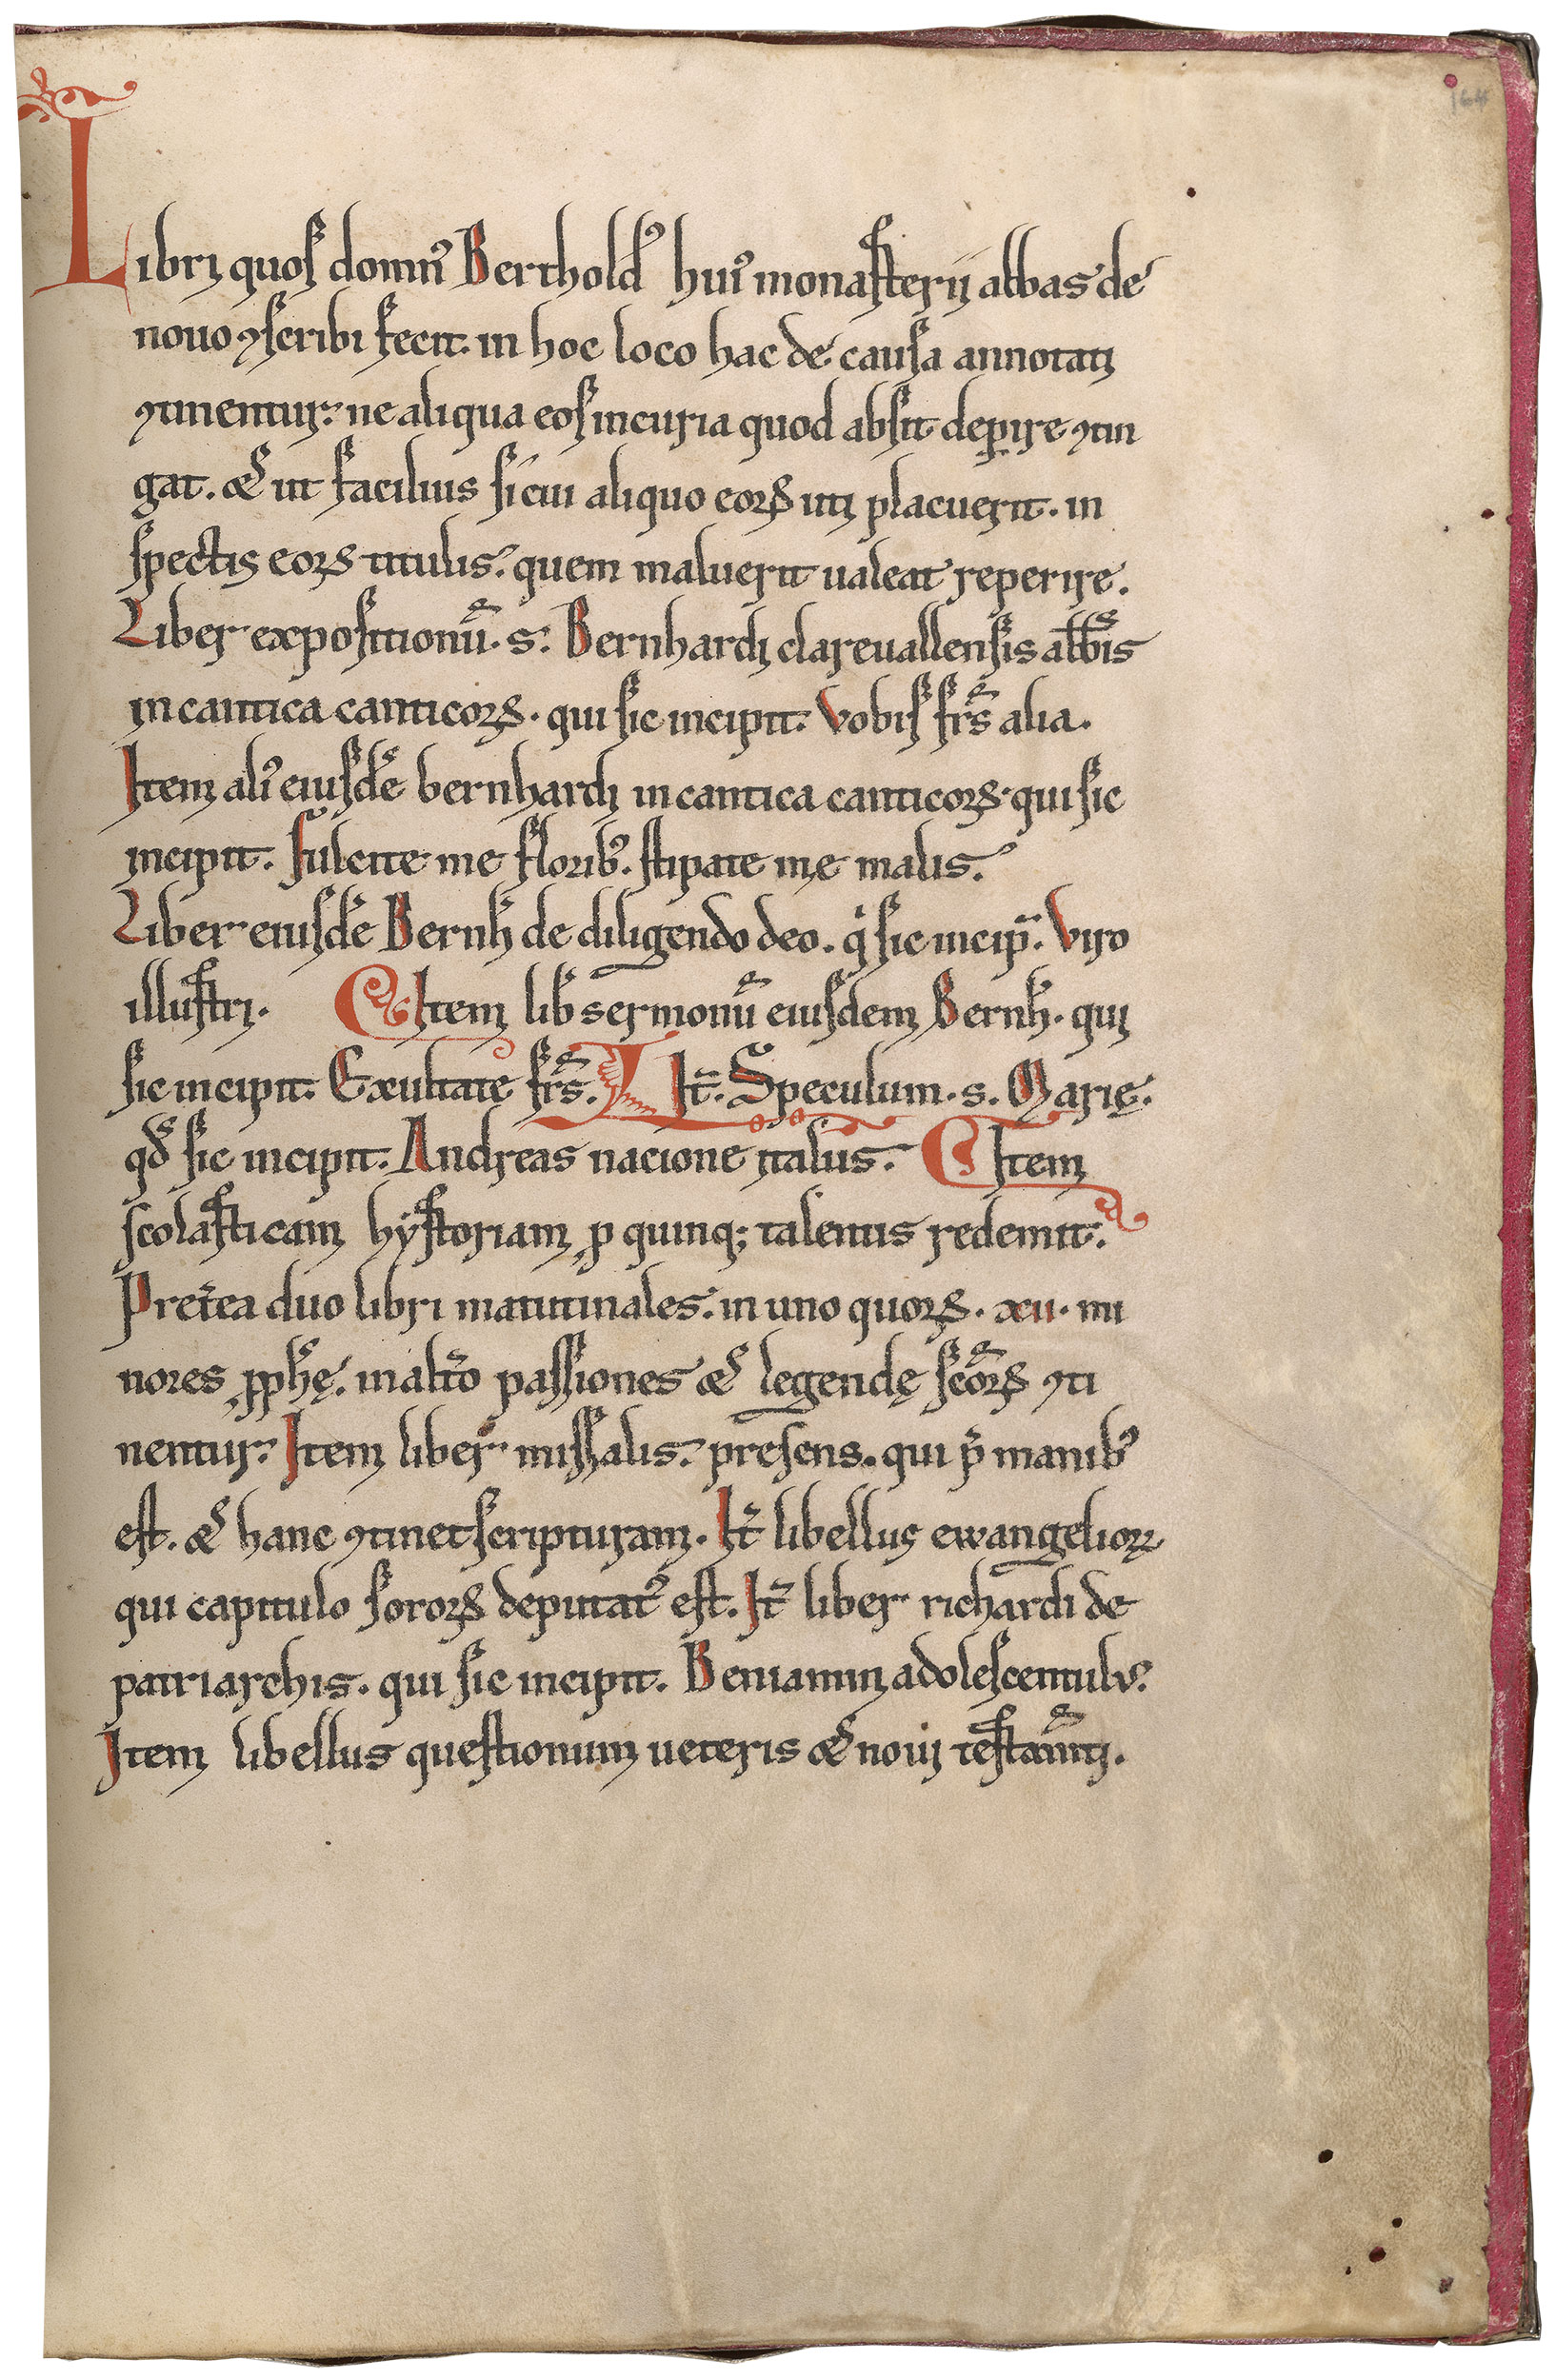 164
Libri quoſ domnꝰ Bertholdꝰ huiꝰ monaſterii abbas de
nouo ꝯſcribi fecit. in hoc loco hac de cauſa annotati
ꝯtinentur. ne aliqua eoſ incuria quod abſit deꝑire ꝯtin
gat. & ut facilius ſi cui aliquo eoꝝ uti placuerit. in
ſpectis eoꝝ titulis. quem maluerit ualeat reperire.
Liber expoſitionū. s. Bernhardi clareuallenſis abb̄is
in cantica canticoꝝ. qui ſic incipit. Vobiſ fr̄s alia.
Item aliꝰ eiuſdē bernhardi in cantica canticoꝝ. qui ſic
incipit. fulcite me floribꝰ. ſtipate me malis.
Liber eiuſdē Bernh̄ de diligendo deo. qͥ ſic incip̄. Viro
illuſtri. Item lib̄ sermonū eiuſdem Bernh̄. qui
ſic incipit. Exultate fr̄s. It̄. Speculum. s. Marię.
qd̄ ſic incipit. Andreas nacione italus. Item
ſcolaſticam hyſtoriam ꝓ quinq; talentis redemit.
Pret̄ea duo libri matutinales. in uno quoꝝ. xii. mi
nores ꝓph̄ę. in alt̄o paſſiones & legendę ſc̄oꝝ ꝯti
nentur. Item liber miſſalis. preſens. qui p̄ manibꝰ
eſt. & hanc ꝯtinet ſcripturam. It̄ libellus ewangelioꝝ
qui capitulo ſororꝝ deputatꝰ eſt. It̄ liber richardi de
patriarchis. qui ſic incipit. Beniamin adoleſcentulus.
Item libellus queſtionum ueteris & noui teſtam̄ti.